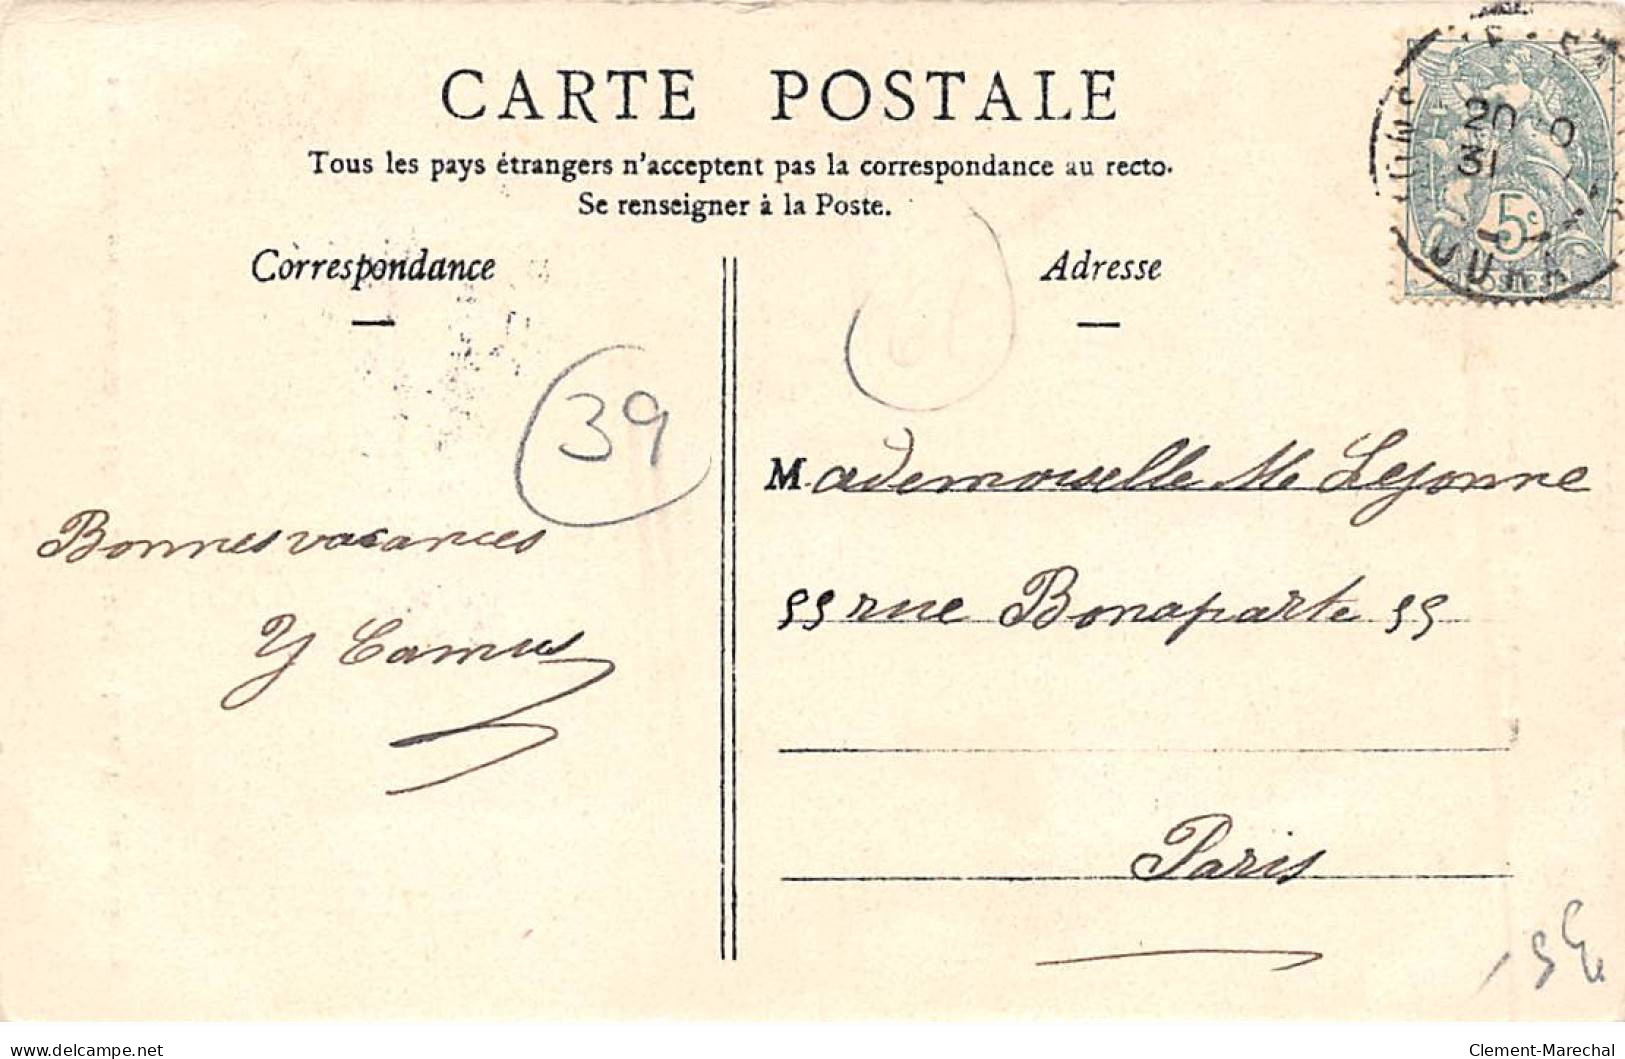 CARTE POSTALE
Tous les pays étrangers n'acceptent pas la correspondance au recto.
Se renseigner à la Poste.
Correspondance
Adresse
20
31
5c
POSTES
JURA
39
Mademoiselle M. Lejonne
Bonnes vacances
55 rue Bonaparte 55
Y Camus
Paris
delcampe.net
Clement-Marechal